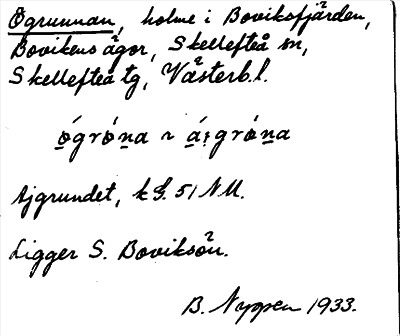 Ögrunnan, holme i Boviksfjärden,
Bovikens ägor, Skellefteå sn,
Skellefteå tg, Västerb. l.
ǫ́grǫ́na ~ ą́:grǫ́na
Ajgrundet, k G. 51 NU.
Ligger S. Boviksön.
B. Nyppen 1933.